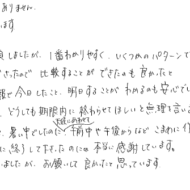 ありません。
ます
しましたが、1番わかりやすく、いくつかのパターンで
きたので 比較することができたのも良かったと
今日したこと、明日することがわかるのも安心でし
、どうしても期限内に終わらせてほしいと無理を言い
、暑い中でしたのに、午前中や午後からなど こまめに
に終うして下さったのには 本当に感謝しています。
ましたが、お願いして 良かったと 思っています